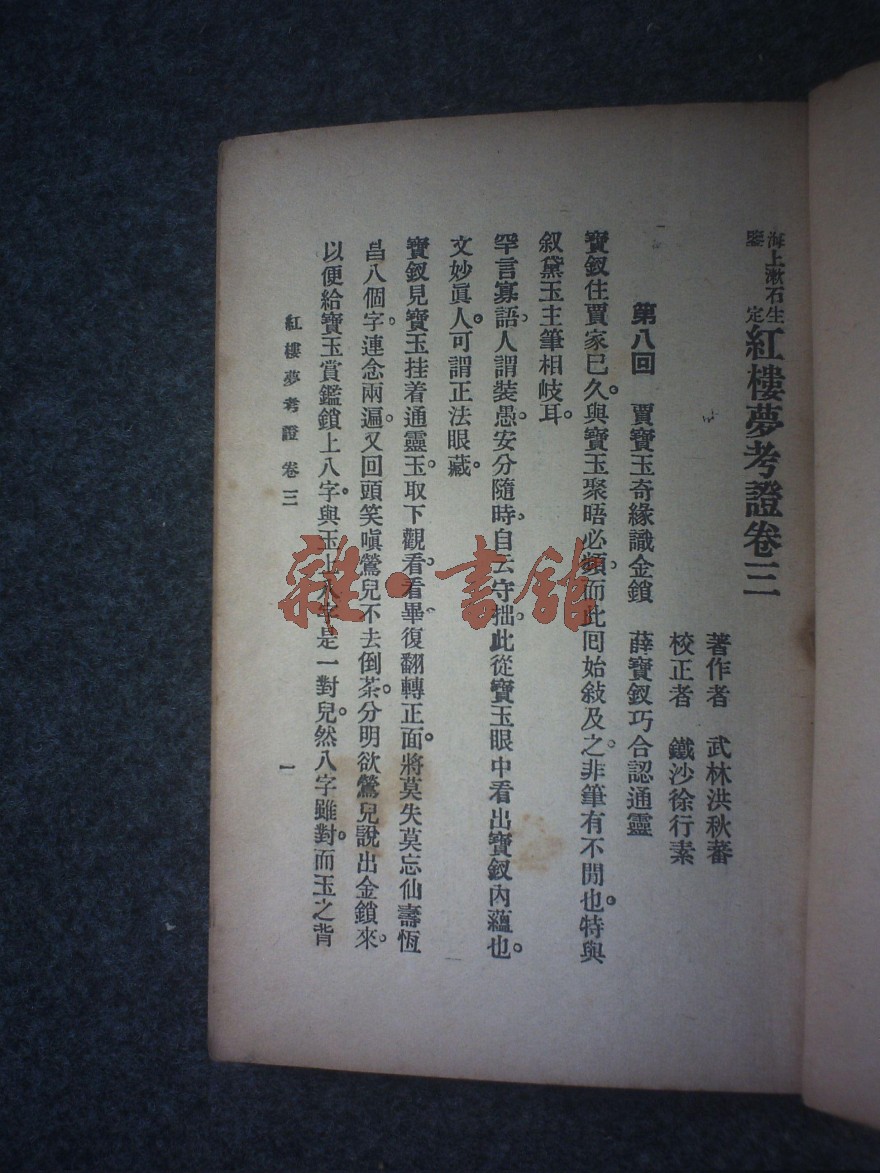 海上漱石生鑒定 紅樓夢考證卷三
著作者 武林洪秋蕃
校正者 鐵沙徐行素
第八回 賈寶玉奇緣識金鎖 薛寶釵巧合認通靈
寶釵住賈家已久。與寶玉聚晤必頻。而此回始敍及之。非筆有不閒也。特與
叙黛玉主筆相岐耳。
罕言寡語。人謂裝愚。安分隨時。自云守拙。此從寶玉眼中看出寶釵內蘊也。
文妙眞人。可謂正法眼藏。
寶釵見寶玉挂着通靈玉。取下觀看。看畢。復翻轉正面。將莫失莫忘仙壽恆
昌八個字。連念兩遍。又回頭笑嗔鶯兒不去倒茶。分明欲鶯兒說出金鎖來。
以便給寶玉賞鑑鎖上八字。與玉上八字是一對兒。然八字雖對。而玉之背
紅樓夢考證 卷三
一
雜·書館